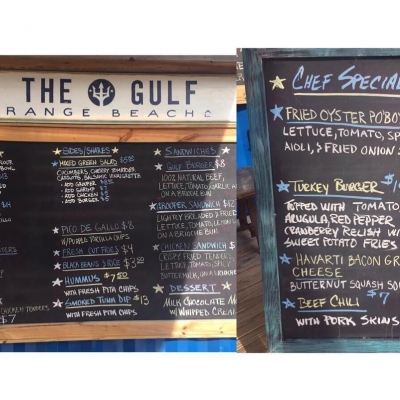 THE GULF
RANGE BEACH
SIDES/SHARES
MIXED GREEN SALAD
CUCUMBERS, CHERRY TOMATOES
CARROTS, BALSAMIC VINAIGRETTE
ADD GROUPER
ADD SHRIMP
ADD CHICKEN
ADD BURGER $5
PICO DE GALLO $8
W/PURPLE TORTILLA CHIPS
FRESH CUT FRIES $4
BLACK BEANS & RICE $3.00
HUMMUS $7.00
WITH FRESH PITA CHIPS
SMOKED TUNA DIP $13
WITH FRESH PITA CHIPS
CHICKEN TENDERS
$7
SANDWICHES
GULF BURGER $8
100% NATURAL BEEF,
LETTUCE, TOMATO, GARLIC
ON A BRIOCHE BUN
GROUPER SANDWICH $12
LIGHTLY BREADED & FRIED
LETTUCE, TOMATO,
ON A BRIOCHE BUN
CHICKEN SANDWICH
CRISPY FRIED TENDERS
LETTUCE, TOMATO,
DESSERT
MILK CHOCOLATE
W/ WHIPPED CREAM
CHEF SPECIAL
FRIED OYSTER PO'BOY
LETTUCE, TOMATO, SP
AIOLI, & FRIED ONION S
TURKEY BURGER $1
TOPPED WITH TOMATO
ARUGULA, RED PEPPER
CRANBERRY RELISH W
SWEET POTATO FRIES
HAVARTI BACON GR
CHEESE
BUTTERNUT SQUASH SOU
BEEF CHILI $7
WITH PORK SKINS